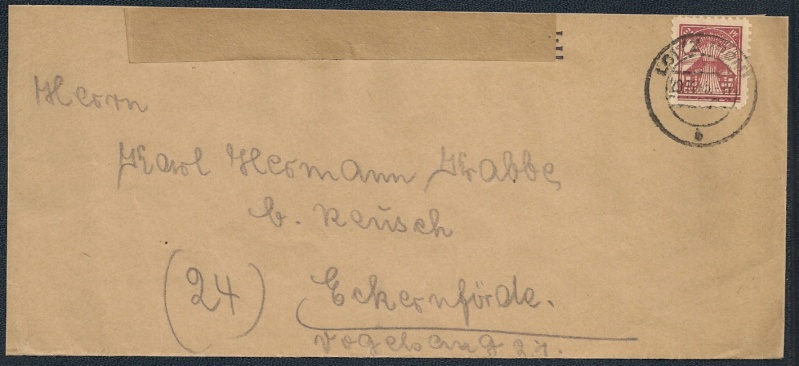 Herrn
Karl Hermann Krabbe
b. Reusch
(24) Eckernförde.
Vogelsang 21.
LOITZ
b